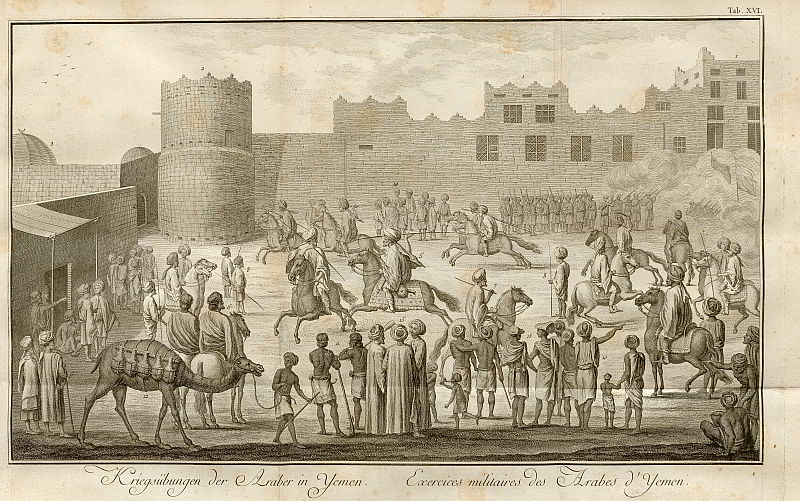 Tab. XVI.
Kriegsübungen der Araber in Yemen. Exercices militaires des Arabes d'Yemen.